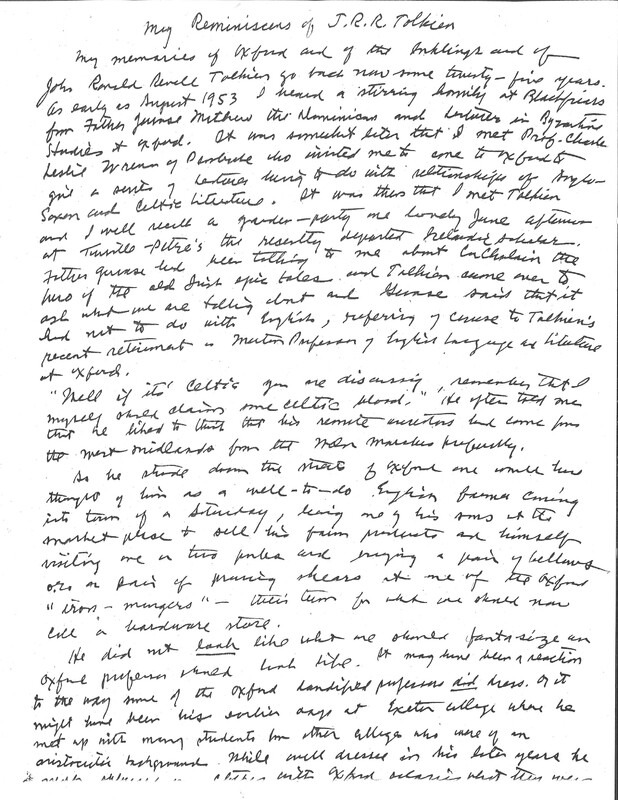 My Reminiscens of J.R.R. Tolkien
My memories of Oxford and of the Inklings and of
John Ronald Reuel Tolkien go back now some twenty-five years.
As early as August 1953 I heard a stirring homily at Blackfriars
from Father Gervase Mathew the Dominican and Lecturer in Byzantine
Studies at Oxford. It was somewhat later that I met Prof. Charles
Leslie Wrenn of Pembroke who invited me to come to Oxford to
give a series of lectures having to do with relationships of Anglo-
Saxon and Celtic Literature. It was then that I met Tolkien
and I well recall a garden-party one lovely June afternoon
at Turville-Petre's the recently departed Icelandic scholar.
Father Gervase had been talking to me about CuChulain the
hero of the old Irish epic tales and Tolkien came over to
ask what we are talking about and Gervase said that it
had not to do with English, refering of course to Tolkien's
recent retirement as Merton Professor of English Language and Literature
at Oxford.
"Well if its' Celtic you are discussing, remember that I
myself should claim some Celtic blood." He often told me
that he liked to think that his remote ancestors had come from
the west midlands from the Welsh Marches
So he strode down the streets of Oxford one would have
thought of him as a well-to-do English farmer coming
into town of a Saturday, leaving one of his sons at the
market place to sell his farm products and himself
visiting one or two pubs and buying a pair of bellows
or a pair of pruning shears at one of the Oxford
"iron-mongers" - their term for what we should now
call a hardware store.
He did not look like what one should fantasize an
Oxford professor should look like. It may have been a reaction
to the way some of the Oxford professors did dress. Or it
might have been his earlier days at Exeter College where he
met up with many students from other colleges who were of an
aristocratic background. While well dressed in his later years he
with Oxford what they were